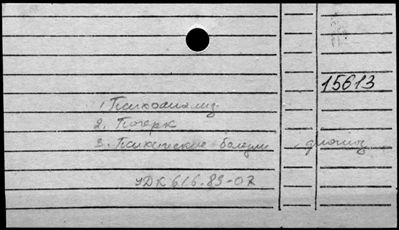 15613
1. Психоанализ.
2. Почерк
3. Психические болезни - диагноз
УДК 616.89-07